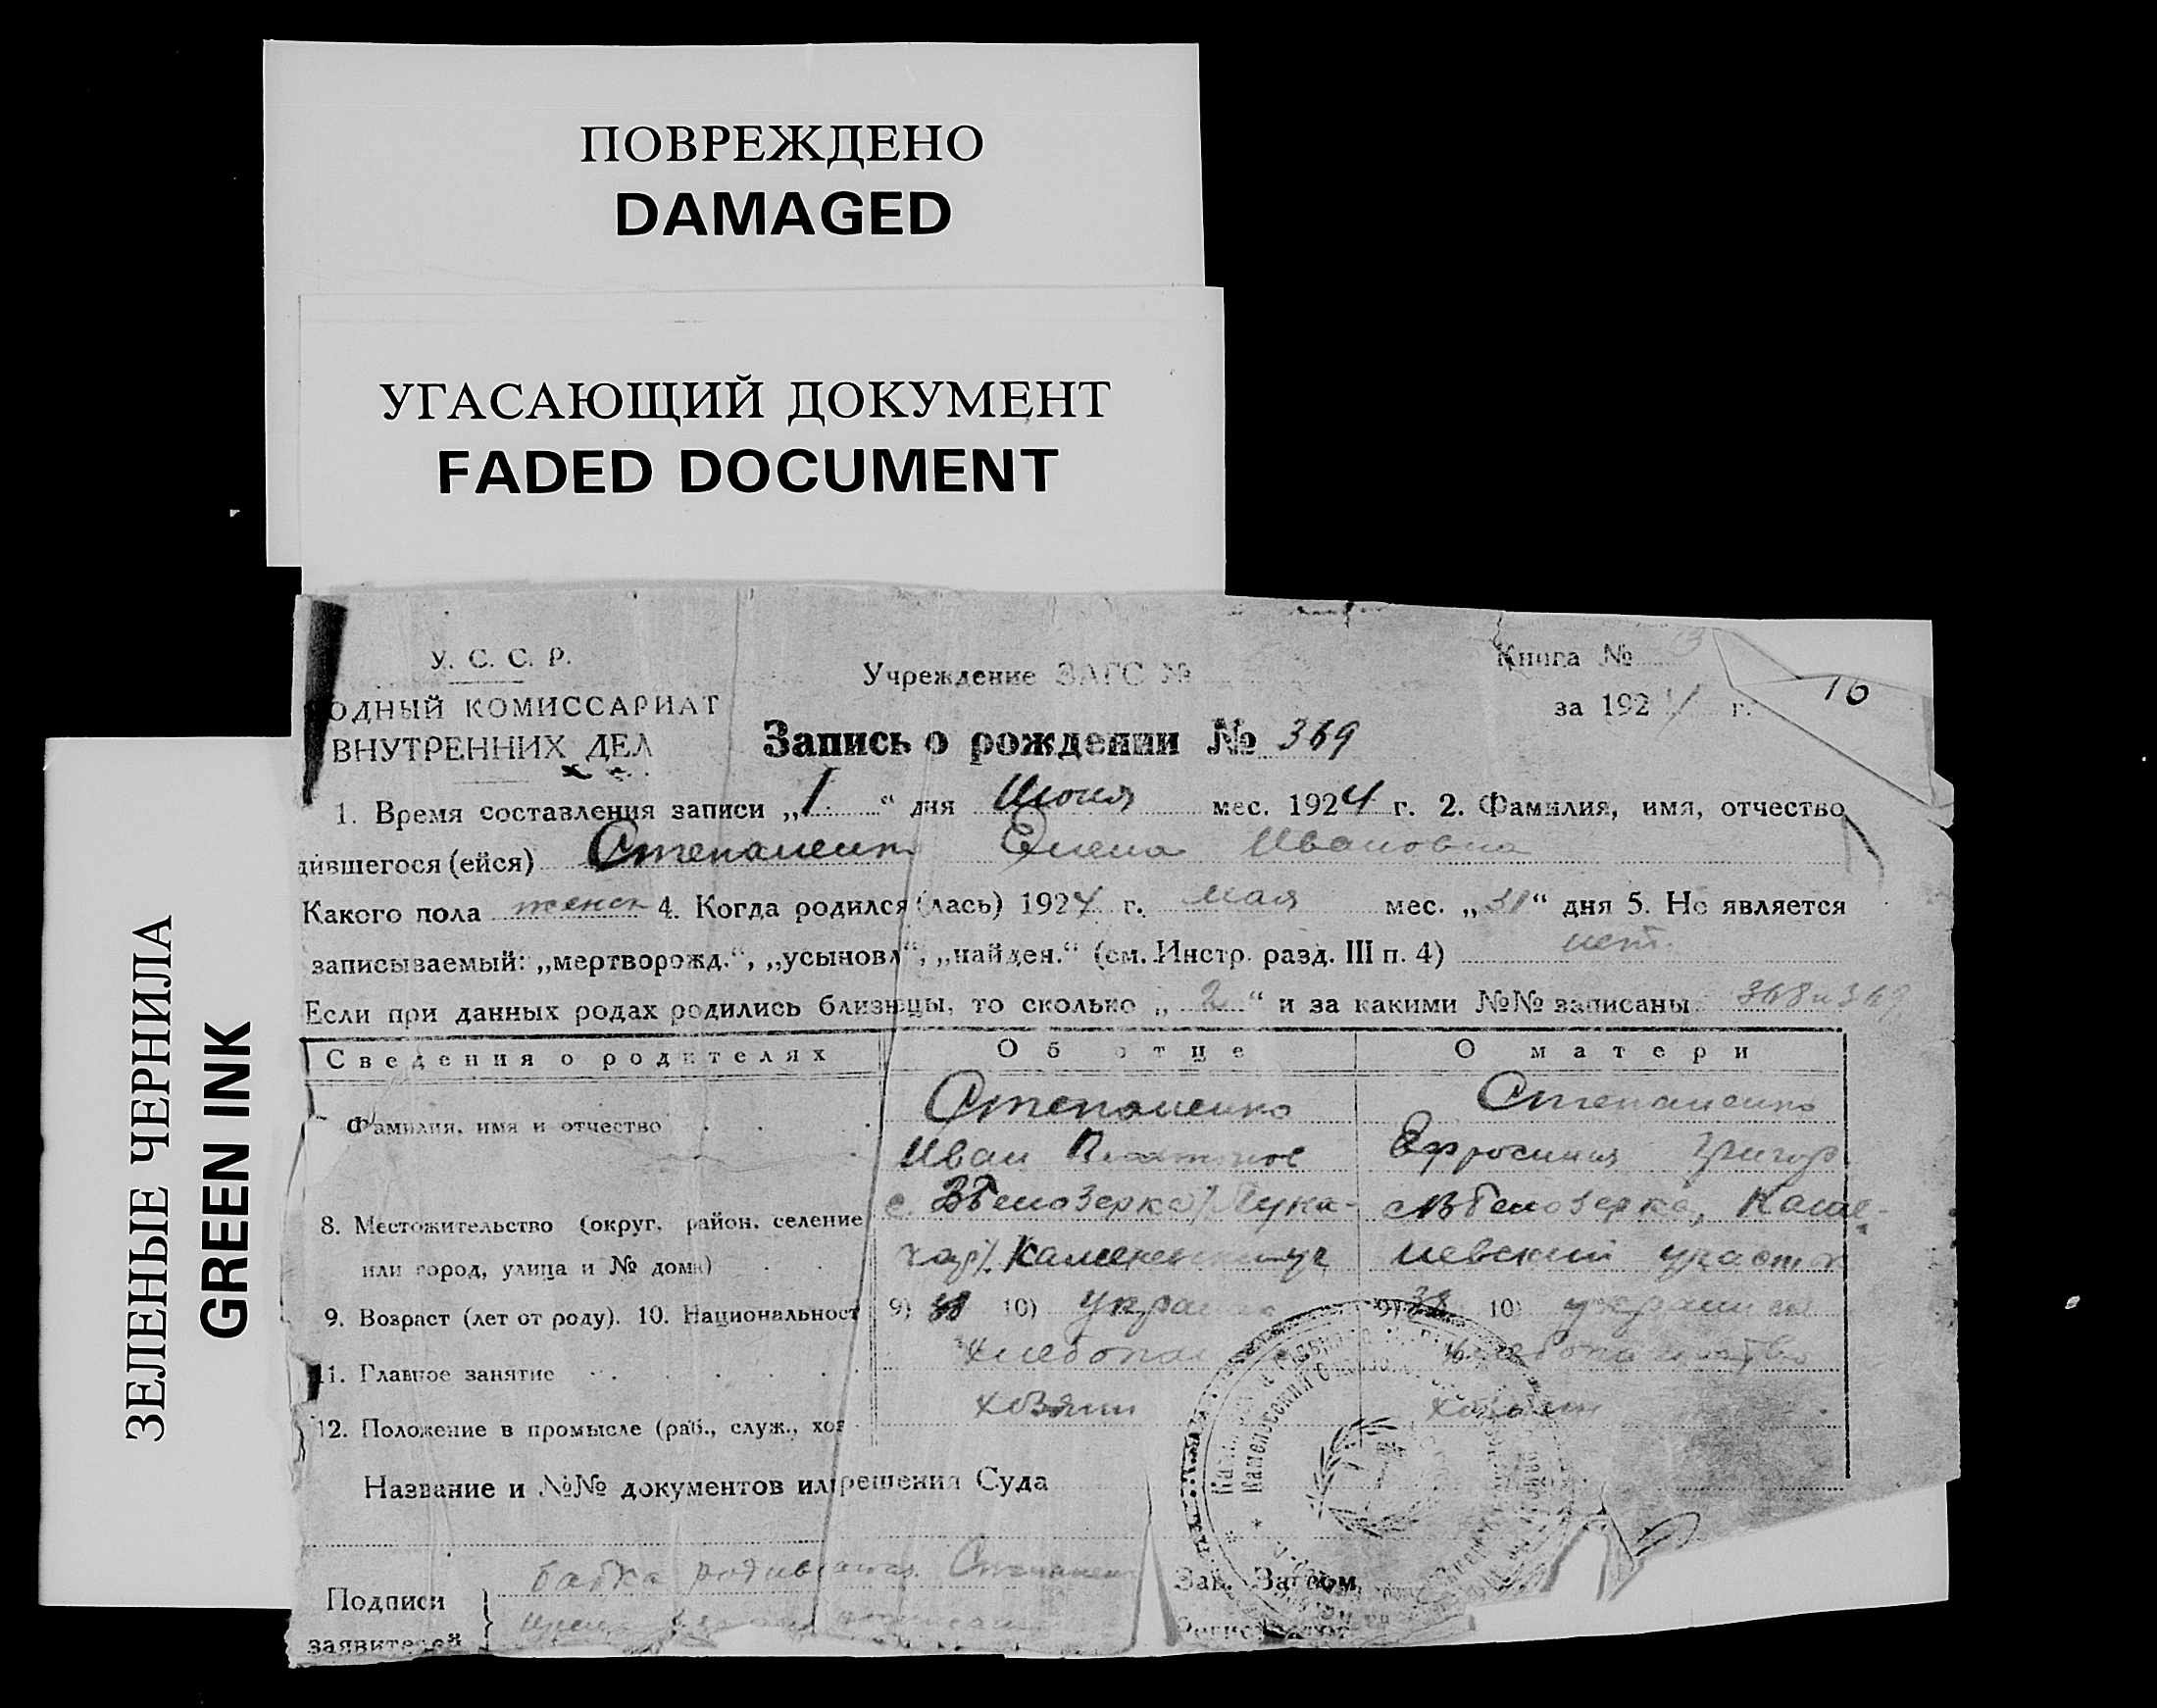 ПОВРЕЖДЕНО
DAMAGED
УГАСАЮЩИЙ ДОКУМЕНТ
FADED DOCUMENT
ЗЕЛЕНЫЕ ЧЕРНИЛА
GREEN INK
У. С. С. Р.
ОДНЫЙ КОМИССАРИАТ
ВНУТРЕННИХ ДЕЛ
Учреждение ЗАГС №
Книга №
за 192 г.
16
Запись о рождении № 369
1. Время составления записи „1“ дня Июня мес. 1924 г. 2. Фамилия, имя, отчество
дившегося (ейся) Степаненко Елена Ивановна
Какого пола женск 4. Когда родился (лась) 1924 г. мая мес. „31“ дня 5. Не является
записываемый: „мертворожд.“, „усыновл“, „найден.“ (см. Инстр. разд. III п. 4) нет.
Если при данных родах родились близнецы, то сколько „2“ и за какими №№ записаны 368 и 369
Сведения о родителях Об отце О матери
Фамилия, имя и отчество Степаненко Степаненко
Иван Ефросиния Григор.
8. Местожительство (округ, район, селение с. Белозерка Белозерка, Каме-
или город, улица и № дома) невский участок
9. Возраст (лет от роду). 10. Национальност 9) 38 10) 9) 38 10)
11. Главное занятие
12. Положение в промысле (раб., служ., хоз хозяин
Название и №№ документов или решения Суда
Подписи
заявителей
бабка родившаяся Степаненко
Зав. Загсом